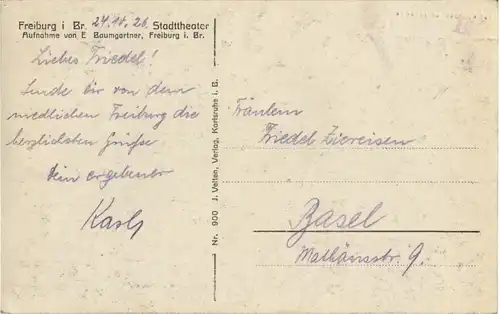 Freiburg i Br. 24.10.26. Stadttheater
Aufnahme von E Baumgartner, Freiburg i. Br.
Liebes Friedel!
Sende dir von dem
niedlichen Freiburg die
herzlichsten Grüsse
Dein ergebener
Karl
Nr. 900 J. Velten, Verlag, Karlsruhe i. B.
Fräulein
Friedel Ziereisen
Basel
Mathäusstr. 9.